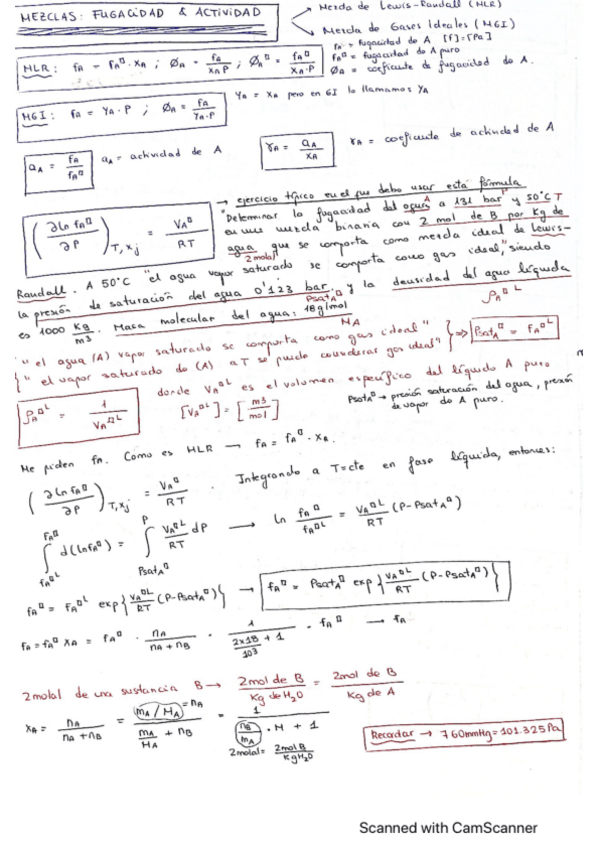 MEZCLAS: FUGACIDAD & ACTIVIDAD
→ Mezcla de Lewis-Randall (MLR)
→ Mezcla de Gases Ideales (MGI)
MLR: fA = fA□ · XA ; ØA = fA / XA·P ; ØA□ = fA□ / XA·P
fA = fugacidad de A [f]=[Pa]
fA□ = fugacidad de A puro
ØA = coeficiente de fugacidad de A.
MGI: fA = YA · P ; ØA = fA / YA·P
YA = XA pero en GI lo llamamos YA
aA = fA / fA□
aA = actividad de A
γA = aA / XA
γA = coeficiente de actividad de A
→ ejercicio típico en el que debo usar esta fórmula
(∂ ln fA□ / ∂P) T, xj = VA□ / RT
"Determinar la fugacidad del agua A a 131 bar P y 50°C T
en una mezcla binaria con 2 mol de B por Kg de
agua que se comporta como mezcla ideal de Lewis-
2 molal
Randall. A 50°C "el agua vapor saturado se comporta como gas ideal", siendo
la presión de saturación del agua 0'123 bar. y la densidad del agua líquida
Psat A□
ρA□L
es 1000 Kg/m3. Masa molecular del agua: 18 g/mol
MA
"el agua (A) vapor saturado se comporta como gas ideal"
"el vapor saturado de (A) a T se puede considerar gas ideal"
⇒ PsatA□ = FA□L
ρA□L = 1 / VA□L
donde VA□L es el volumen específico del líquido A puro
[VA□L] = [m3/mol]
PsatA□ → presión saturación del agua, presión
de vapor de A puro.
Me piden fA. Como es MLR → fA = fA□ · XA.
(∂ ln fA□ / ∂P) T, xj = VA□ / RT . Integrando a T=cte en fase líquida, entonces:
∫ fA□L FA□ d(ln fA□) = ∫ PsatA□ P VA□L / RT dP → ln fA□ / fA□L = VA□L / RT (P-PsatA□)
fA□ = FA□L exp{VA□L / RT (P-PsatA□)} → fA□ = PsatA□ exp{VA□L / RT (P-PsatA□)}
fA = fA□ XA = fA□ · nA / nA + nB · 1 / 2×18/10³ + 1 · fA□ → fA
2 molal de una sustancia B → 2mol de B / Kg de H2O = 2mol de B / Kg de A
XA = nA / nA + nB = mA / MA = nA / mA/MA + nB = 1 / nB/mA · M + 1
2molal = 2mol B / Kg H2O
Recordar → 760mmHg = 101.325 Pa
Scanned with CamScanner